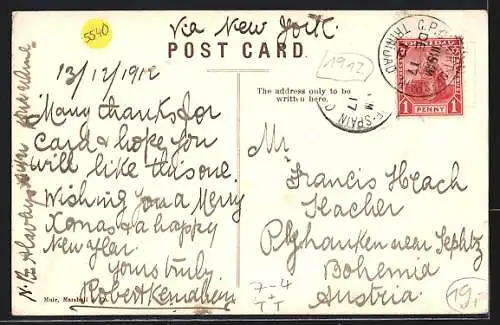 5540
Via New York.
POST CARD.
1912
13/12/1912
The address only to be
written here.
TRINIDAD
1 PENNY 1
Many thanks for
card & hope you
will like this one.
Wishing you a Merry
Xmas & a happy
New Year.
Yours truly,
Mr
Francis Heach
Teacher
near
Bohemia
Austria.
N.B. Always
Muir, Marshall
7-4
+
TT
19,-